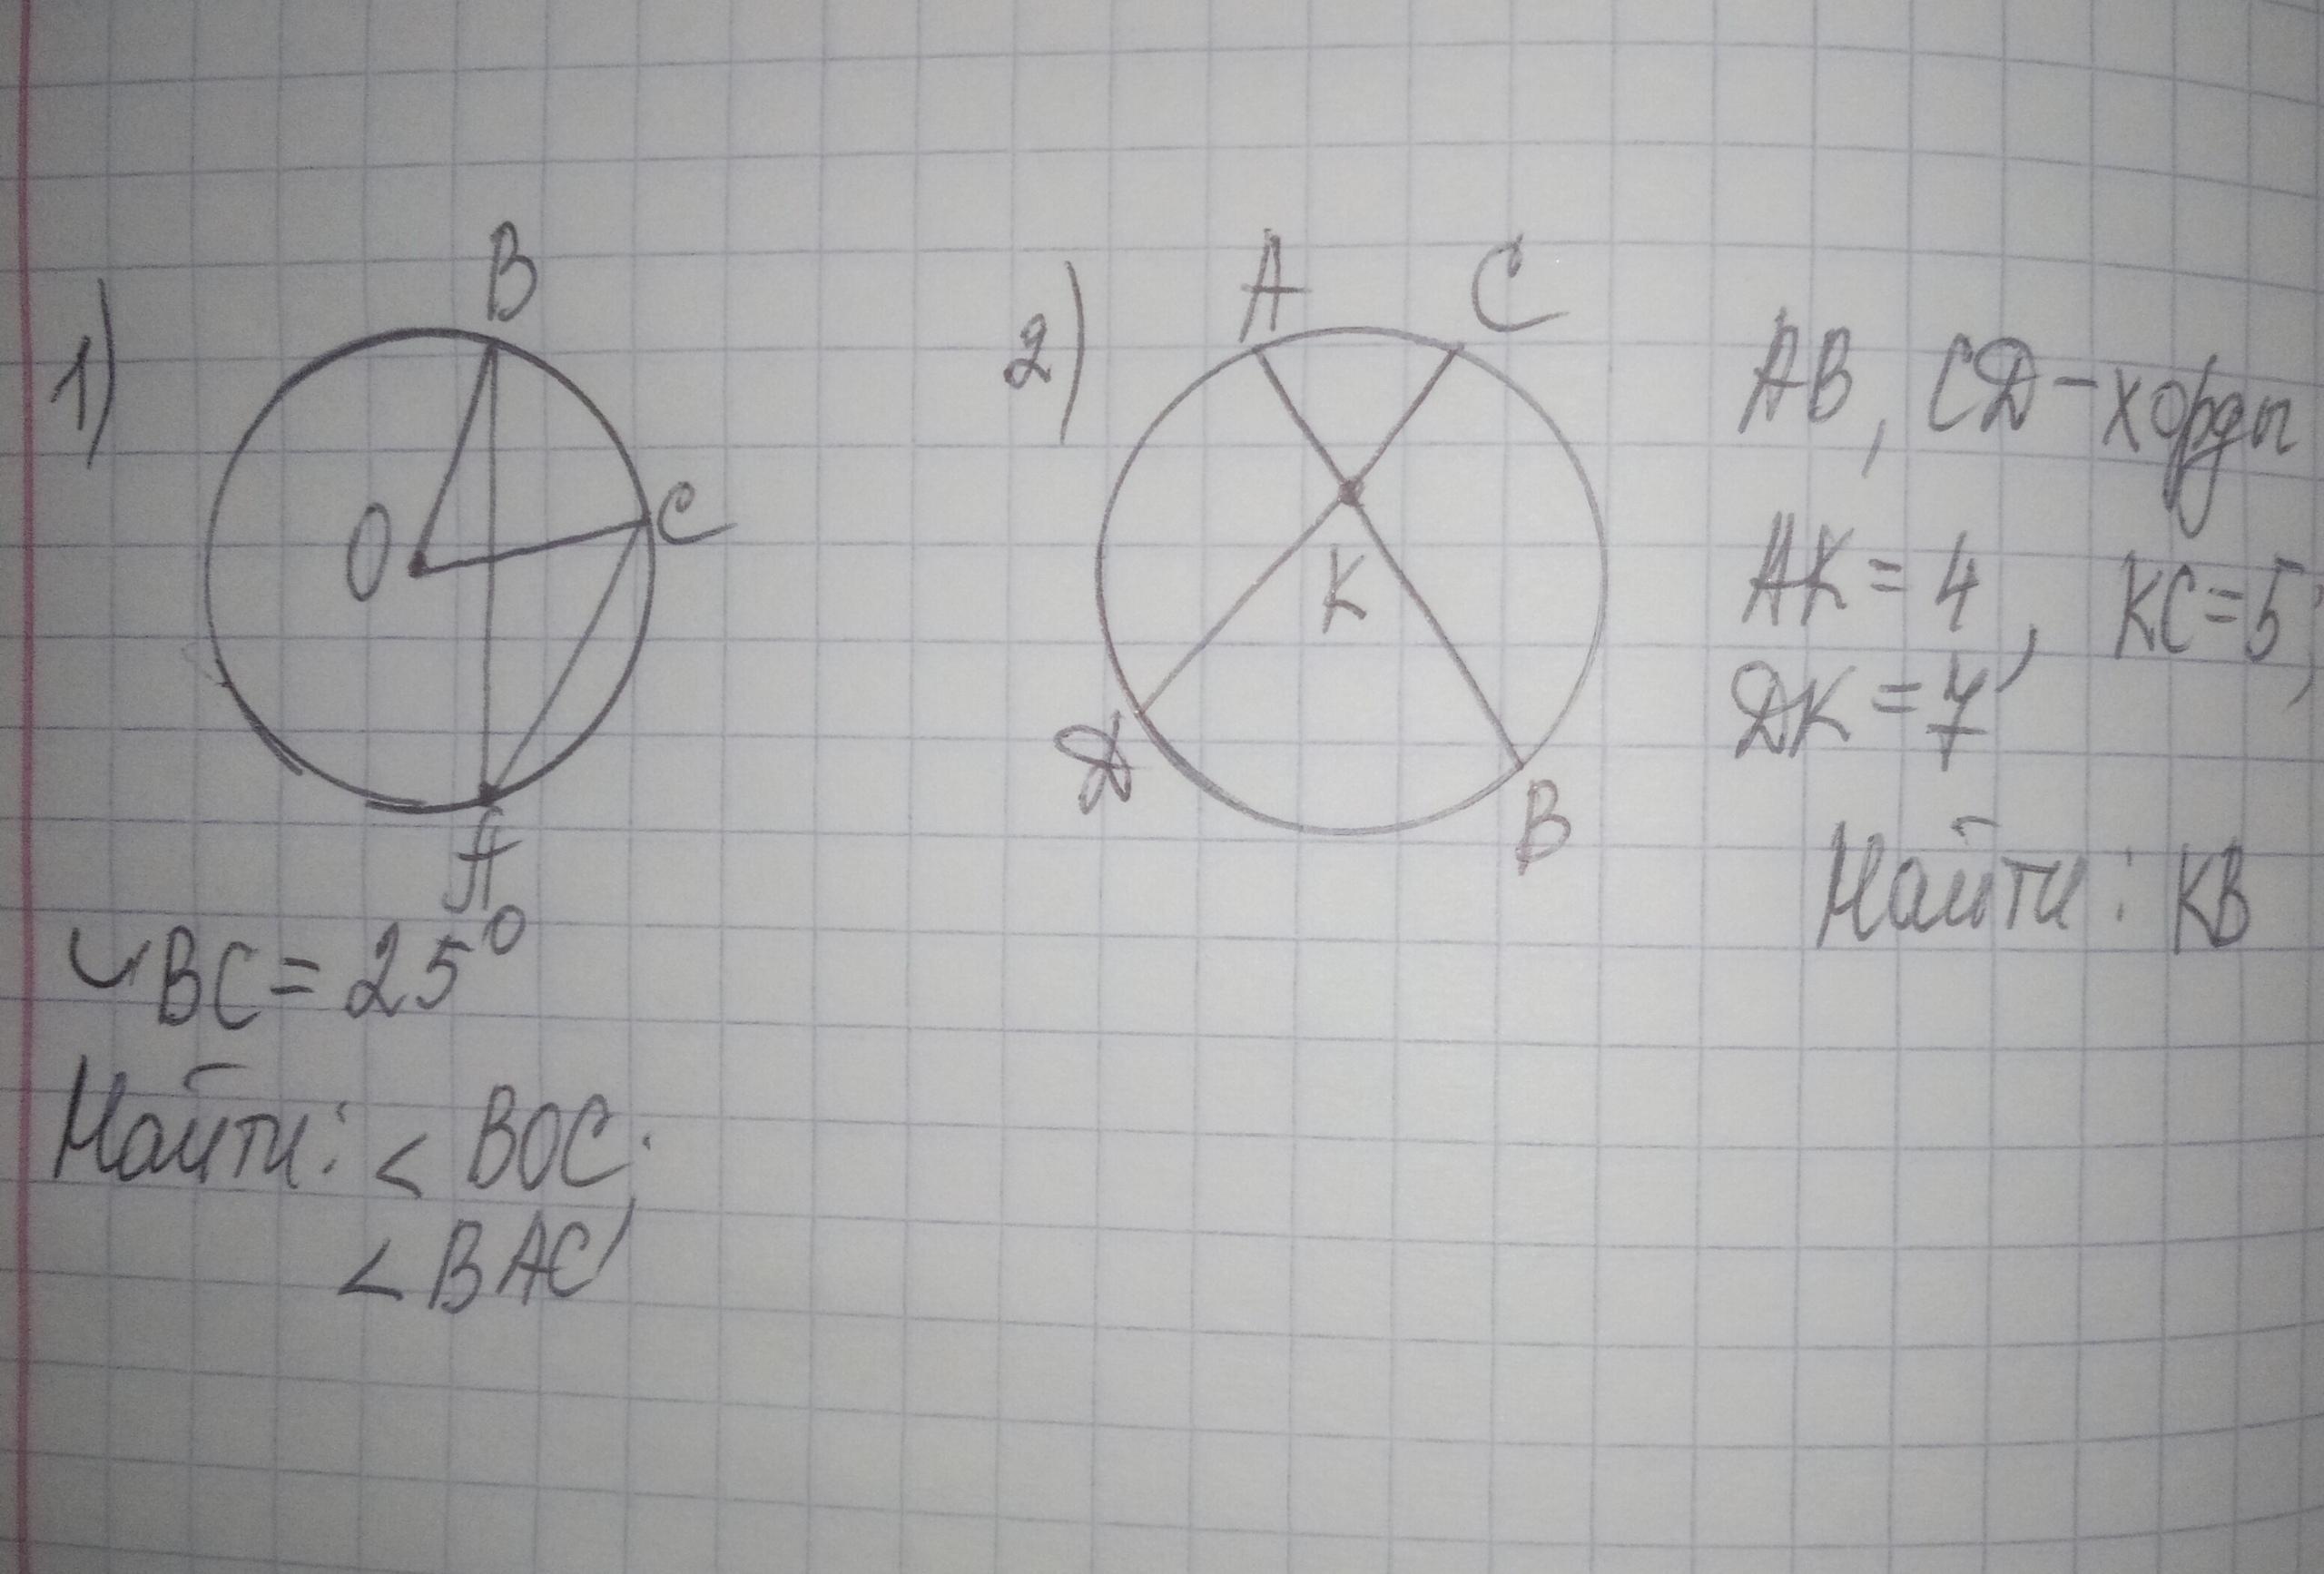 1)
B
O
C
A
◡BC = 25°
Найти: < BOC;
< BAC
2)
A
C
K
Д
B
AB, CД - хорды
AK = 4, KC = 5;
ДK = 7
Найти: KB